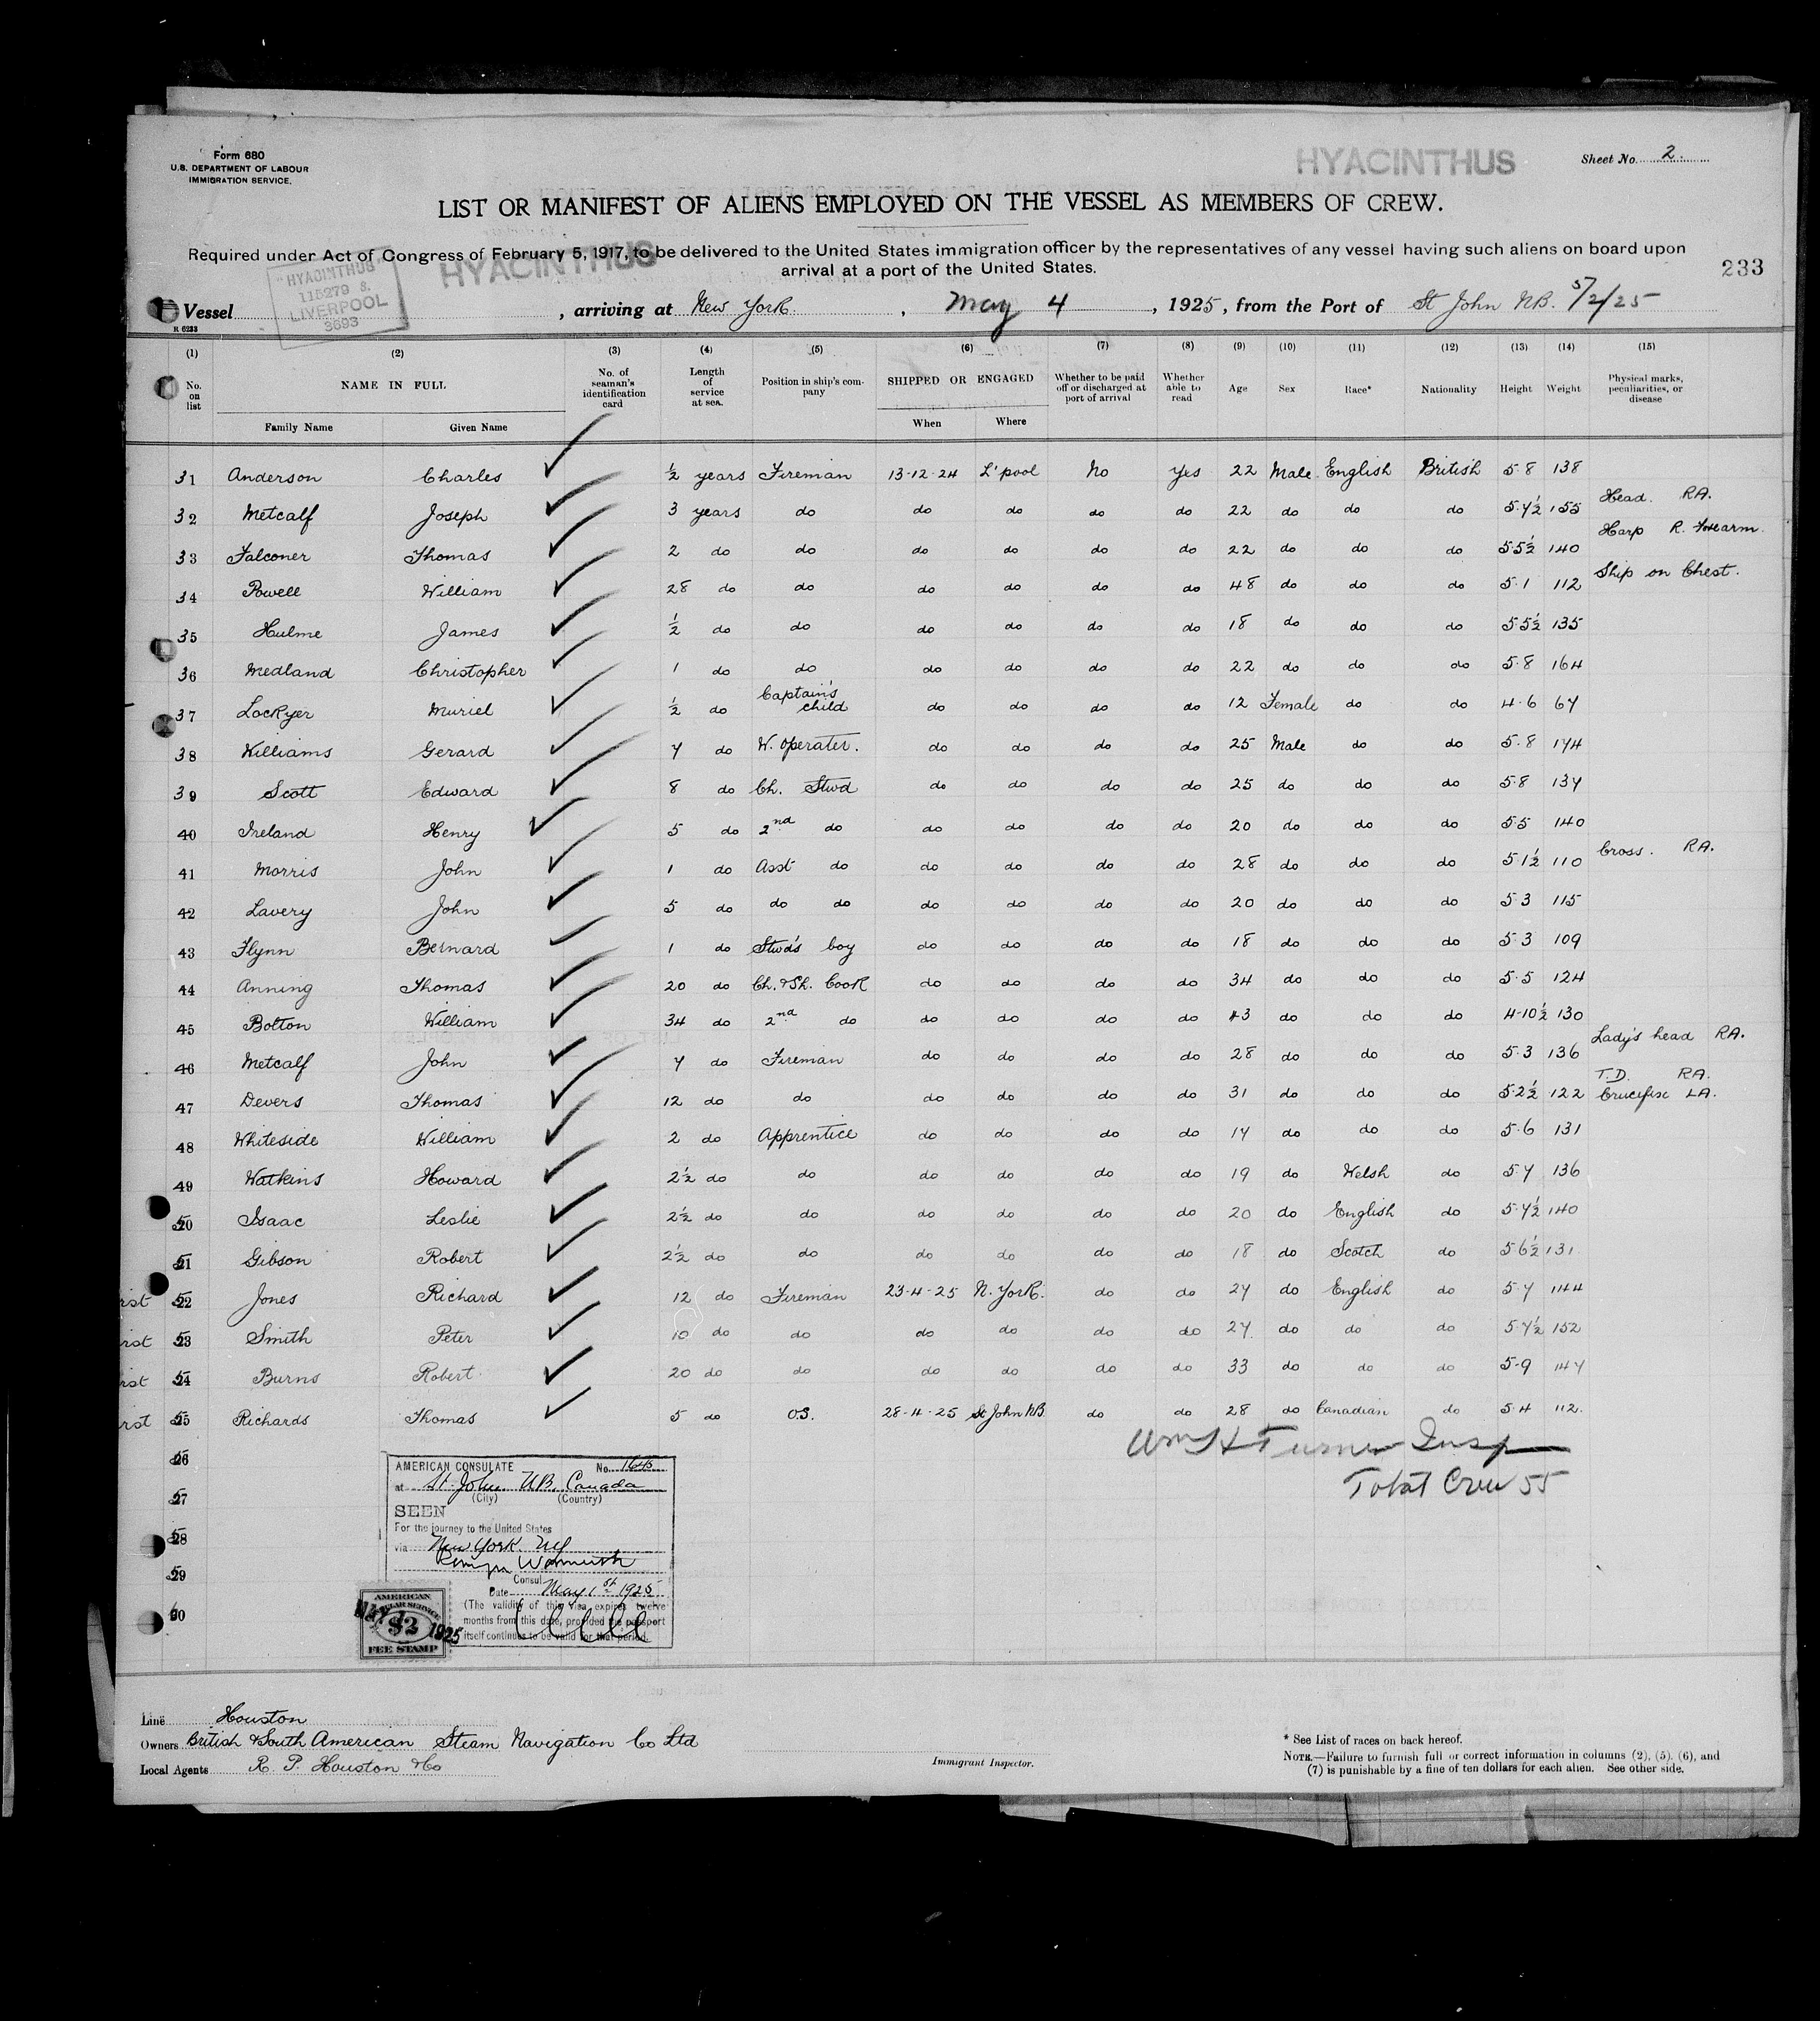 Form 680
U.S. DEPARTMENT OF LABOUR
IMMIGRATION SERVICE.
HYACINTHUS
Sheet No. 2.
LIST OR MANIFEST OF ALIENS EMPLOYED ON THE VESSEL AS MEMBERS OF CREW.
Required under Act of Congress of February 5, 1917, to be delivered to the United States immigration officer by the representatives of any vessel having such aliens on board upon
arrival at a port of the United States.
233
HYACINTHUS
"HYACINTHUS"
115279 S.
LIVERPOOL
3693
Vessel , arriving at New York. , May 4 , 1925, from the Port of St John NB. 5/2/25
R 6233
(1) (2) (3) (4) (5) (6) (7) (8) (9) (10) (11) (12) (13) (14) (15)
No. on list NAME IN FULL No. of seaman's identification card Length of service at sea. Position in ship's company SHIPPED OR ENGAGED Whether to be paid off or discharged at port of arrival Whether able to read Age Sex Race* Nationality Height Weight Physical marks, peculiarities, or disease
Family Name Given Name When Where
31 Anderson Charles ½ years Fireman 13-12-24 L'pool No Yes 22 Male English British 5-8 138
32 Metcalf Joseph 3 years do do do do do 22 do do do 5-7½ 155 Head. RA.
33 Falconer Thomas 2 do do do do do do 22 do do do 5 5½ 140 Harp R. Forearm.
34 Powell William 28 do do do do do do 48 do do do 5-1 112 Ship on Chest.
35 Hulme James ½ do do do do do do 18 do do do 5 5½ 135
36 Medland Christopher 1 do do do do do do 22 do do do 5-8 164
37 Lockyer Muriel ½ do Captain's child do do do do 12 Female do do 4-6 67
38 Williams Gerard 7 do W. Operater. do do do do 25 Male do do 5-8 174
39 Scott Edward 8 do Ch. Stwd do do do do 25 do do do 5-8 137
40 Ireland Henry 5 do 2nd do do do do do 20 do do do 5-5 140
41 Morris John 1 do Asst do do do do do 28 do do do 5 1½ 110 Cross. RA.
42 Lavery John 5 do do do do do do do 20 do do do 5-3 115
43 Flynn Bernard 1 do Stwd's boy do do do do 18 do do do 5-3 109
44 Anning Thomas 20 do Ch. & Sh. Cook do do do do 34 do do do 5-5 124
45 Bolton William 34 do 2nd do do do do do 43 do do do 4-10½ 130
46 Metcalf John 7 do Fireman do do do do 28 do do do 5-3 136 Lady's head RA.
47 Devers Thomas 12 do do do do do do 31 do do do 5-2½ 122 T.D. RA. Crucifix LA.
48 Whiteside William 2 do Apprentice do do do do 17 do do do 5-6 131
49 Watkins Howard 2½ do do do do do do 19 do Welsh do 5-7 136
50 Isaac Leslie 2½ do do do do do do 20 do English do 5-7½ 140
51 Gibson Robert 2½ do do do do do do 18 do Scotch do 5 6½ 131
rst 52 Jones Richard 12 do Fireman 23-4-25 N. York. do do 27 do English do 5-7 144
rst 53 Smith Peter 10 do do do do do do 27 do do do 5-7½ 152
rst 54 Burns Robert 20 do do do do do do 33 do do do 5-9 147
rst 55 Richards Thomas 5 do O.S. 28-4-25 St John NB do do 28 do Canadian do 5-4 112.
56
57
58
59
60
Wm H Turner Insp
Total Crew 55
AMERICAN CONSULATE No. 1645
at St. John. N.B. Canada
(City) (Country)
SEEN
For the journey to the United States
via New York. NY
Consul
Date May 1st 1925
(The validity of this visa expires twelve
months from this date, provided the passport
itself continues to be valid for that period.
AMERICAN
CONSULAR SERVICE
$2
FEE STAMP
MAY 1 1925
Line Houston
Owners British & South American Steam Navigation Co Ltd
Local Agents R. P. Houston & Co
Immigrant Inspector.
* See List of races on back hereof.
NOTE.—Failure to furnish full or correct information in columns (2), (5), (6), and
(7) is punishable by a fine of ten dollars for each alien. See other side.